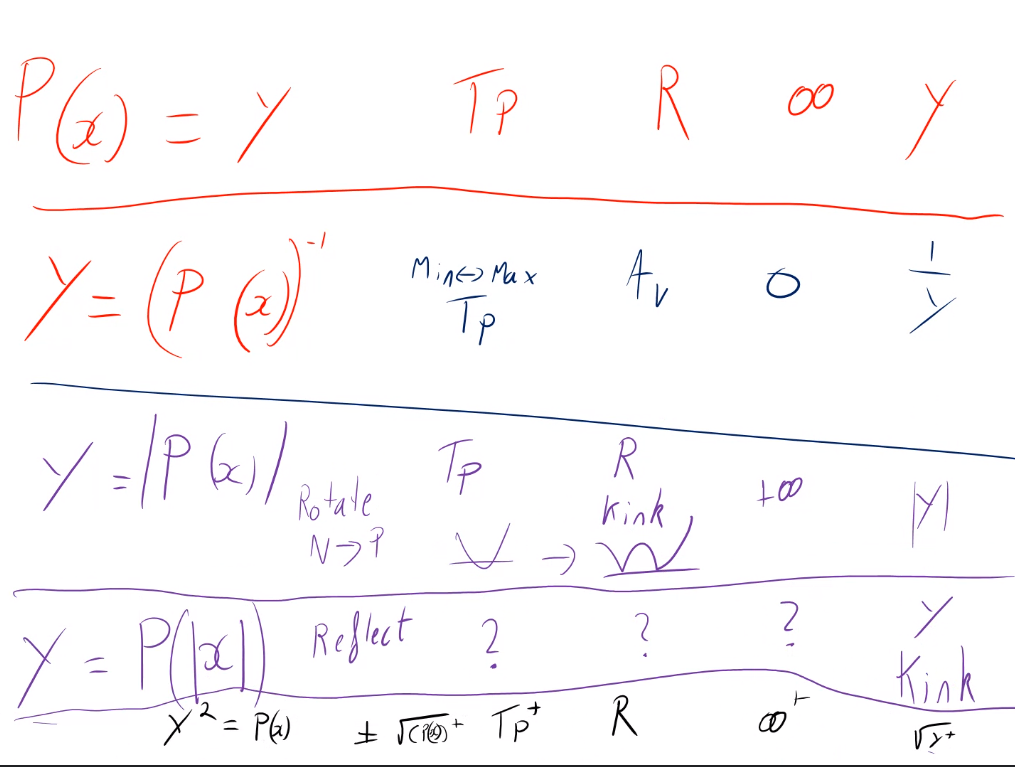 P(x) = y Tp R ∞ y
y = (P(x))⁻¹ Min↔Max Tp Av 0 1/y
y = |P(x)| Rotate N→P Tp → R Kink +∞ |y|
y = P(|x|) Reflect ? ? ? y Kink
y² = P(x) ± √(P(x))⁺ Tp⁺ R ∞⁺ √y⁺